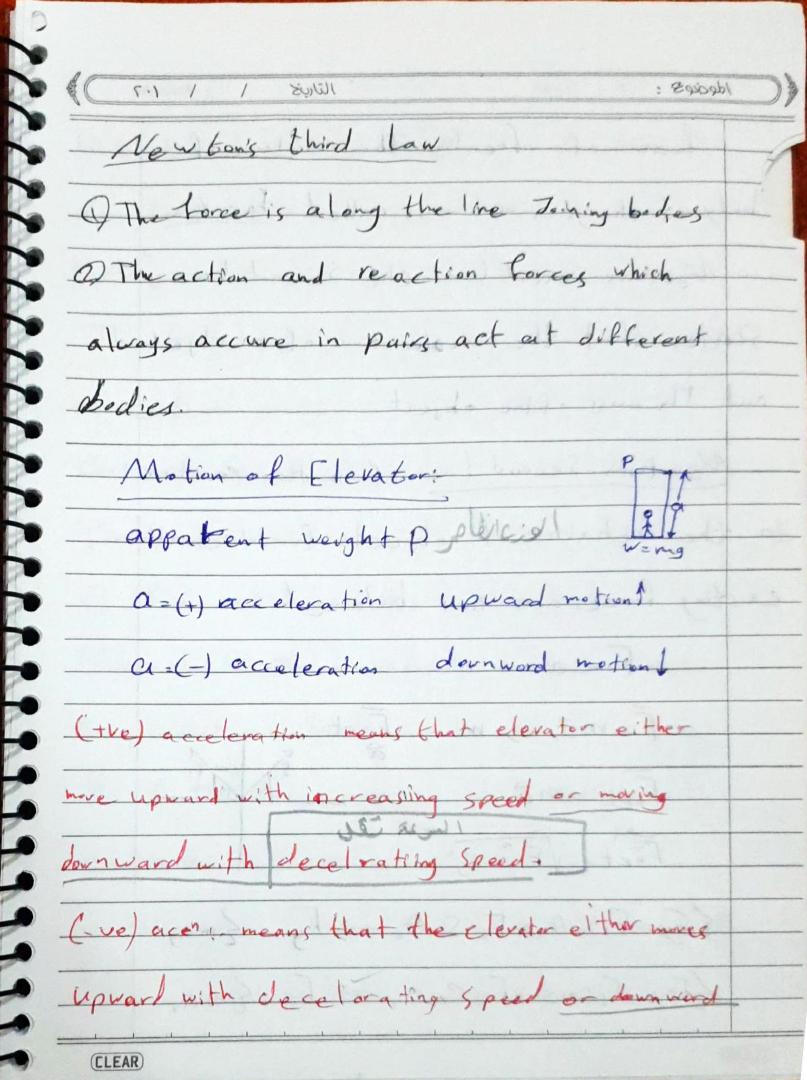 الموضوع :
التاريخ / / ٢٠١
Newton's third Law
① The force is along the line Joining bodies
② The action and reaction forces which
always accure in pairs act at different
bodies.
Motion of Elevator:
P
a
W=mg
apparent weight P الوزن الظاهرى
a=(+) acceleration upward motion↑
a=(-) acceleration downward motion↓
(+ve) acceleration means that elevator either
move upward with increasing speed or moving
السرعة تقل
downward with decelrating speed.
(-ve) accn. means that the elevator either moves
upward with decelorating speed or downward
CLEAR